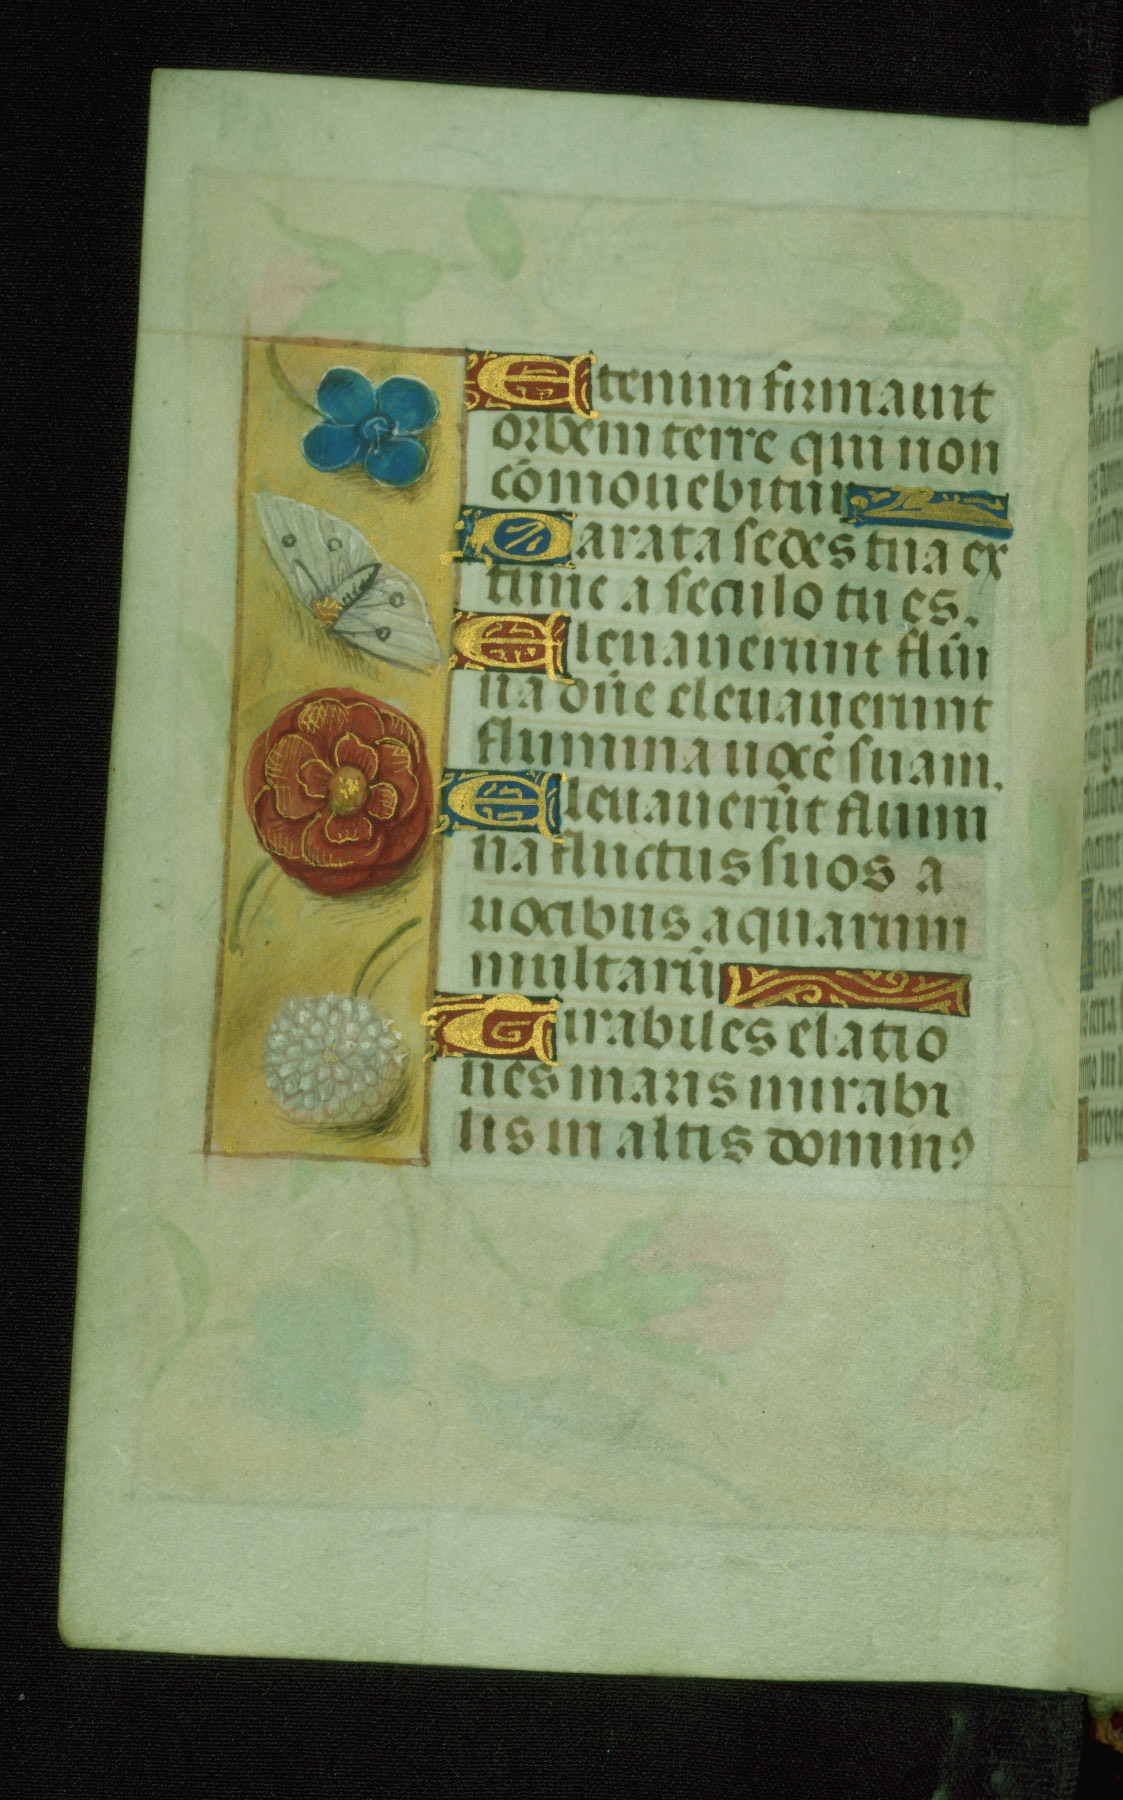 Etenim firmauit
orbem terre qui non
cōmouebitur
Parata sedes tua ex
tunc a seculo tu es.
Eleuauerunt flūi
na dn̄e eleuauerunt
flumina uocē suam.
Eleuauerūt flumi
na fluctus suos a
uocibus aquarum
multarū
Mirabiles elatio
nes maris mirabi
lis in altis dominꝰ